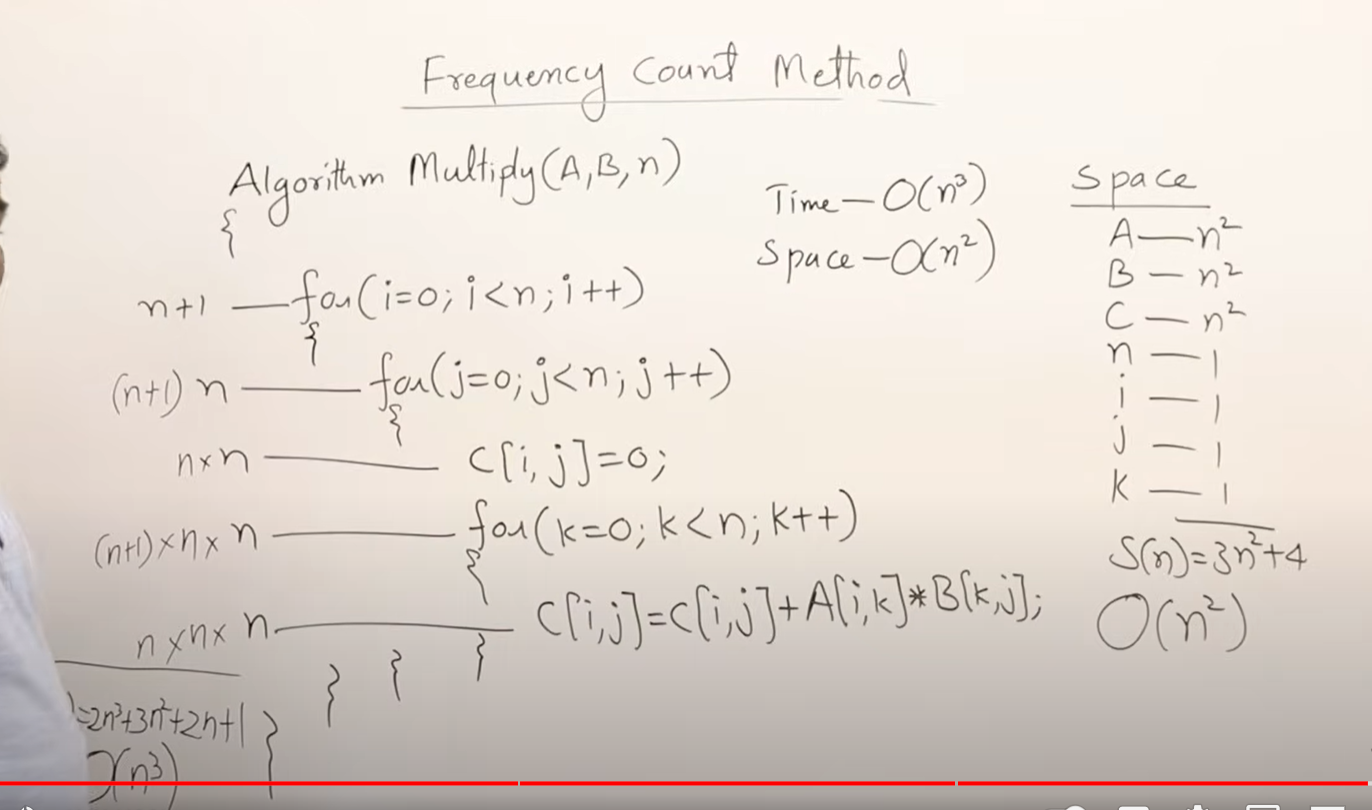 Frequency Count Method
Algorithm Multiply(A,B,n)
{
n+1 — for(i=0; i<n; i++)
{
(n+1) n — for(j=0; j<n; j++)
{
n×n — C[i,j]=0;
(n+1)×n×n — for(k=0; k<n; k++)
{
n×n×n — C[i,j]=C[i,j]+A[i,k]*B[k,j];
} } }
)=2n³+3n²+2n+1 }
O(n³)
Time — O(n³)
Space — O(n²)
Space
A — n²
B — n²
C — n²
n — 1
i — 1
j — 1
k — 1
S(n)=3n²+4
O(n²)